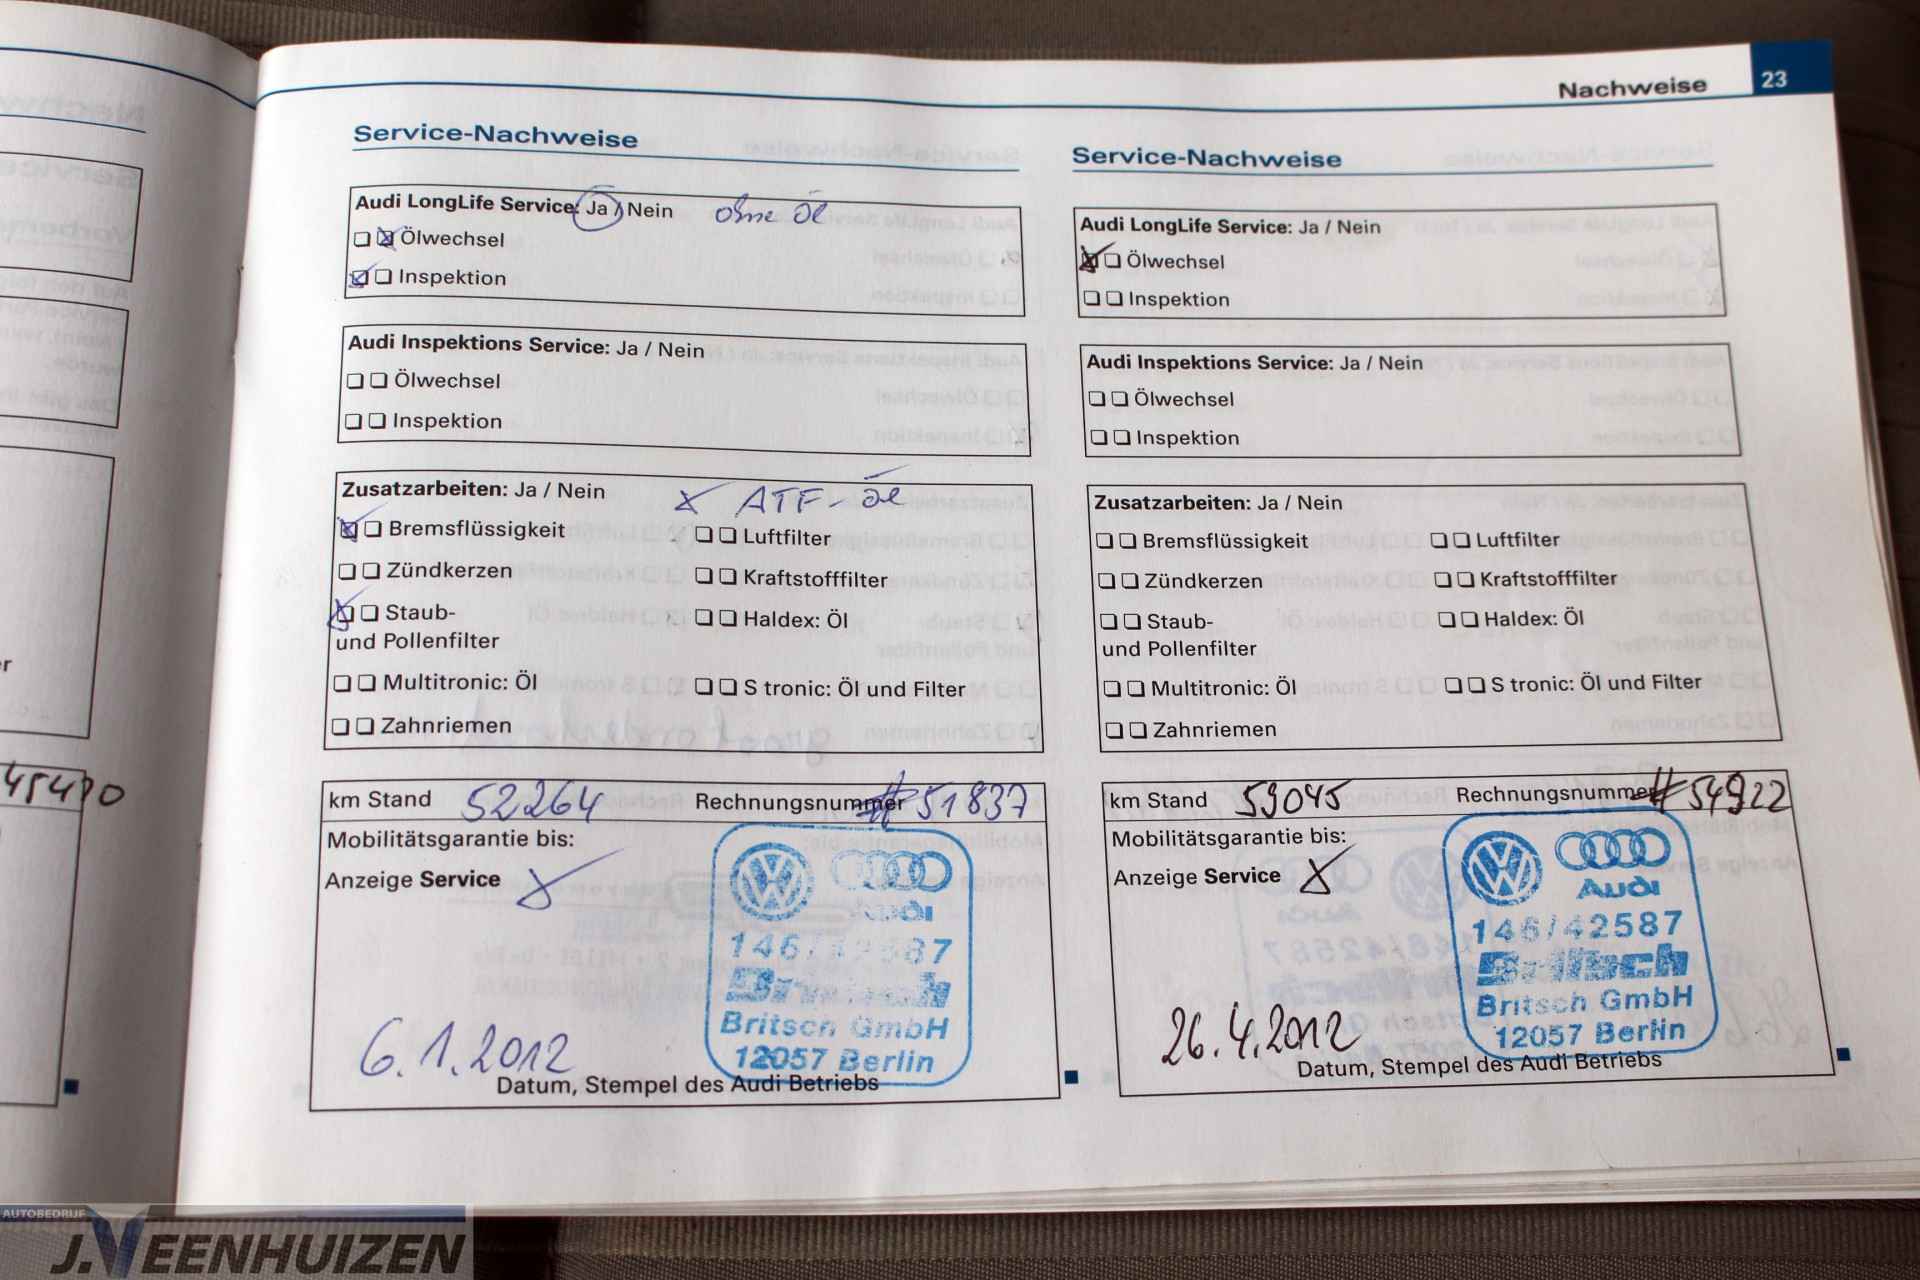 Nachweise 23
Service-Nachweise
Audi LongLife Service: Ja / Nein ohne Öl
Ölwechsel
Inspektion
Audi Inspektions Service: Ja / Nein
Ölwechsel
Inspektion
Zusatzarbeiten: Ja / Nein x ATF-Öl
Bremsflüssigkeit Luftfilter
Zündkerzen Kraftstofffilter
Staub- Haldex: Öl
und Pollenfilter
Multitronic: Öl S tronic: Öl und Filter
Zahnriemen
km Stand 52264 Rechnungsnummer #51837
Mobilitätsgarantie bis:
Anzeige Service x
Audi
146/42587
Britsch
Britsch GmbH
12057 Berlin
6.1.2012
Datum, Stempel des Audi Betriebs
Service-Nachweise
Audi LongLife Service: Ja / Nein
Ölwechsel
Inspektion
Audi Inspektions Service: Ja / Nein
Ölwechsel
Inspektion
Zusatzarbeiten: Ja / Nein
Bremsflüssigkeit Luftfilter
Zündkerzen Kraftstofffilter
Staub- Haldex: Öl
und Pollenfilter
Multitronic: Öl S tronic: Öl und Filter
Zahnriemen
km Stand 59045 Rechnungsnummer #54922
Mobilitätsgarantie bis:
Anzeige Service x
Audi
146/42587
Britsch
Britsch GmbH
12057 Berlin
26.4.2012
Datum, Stempel des Audi Betriebs
45470
AUTOBEDRIJF
J.VEENHUIZEN